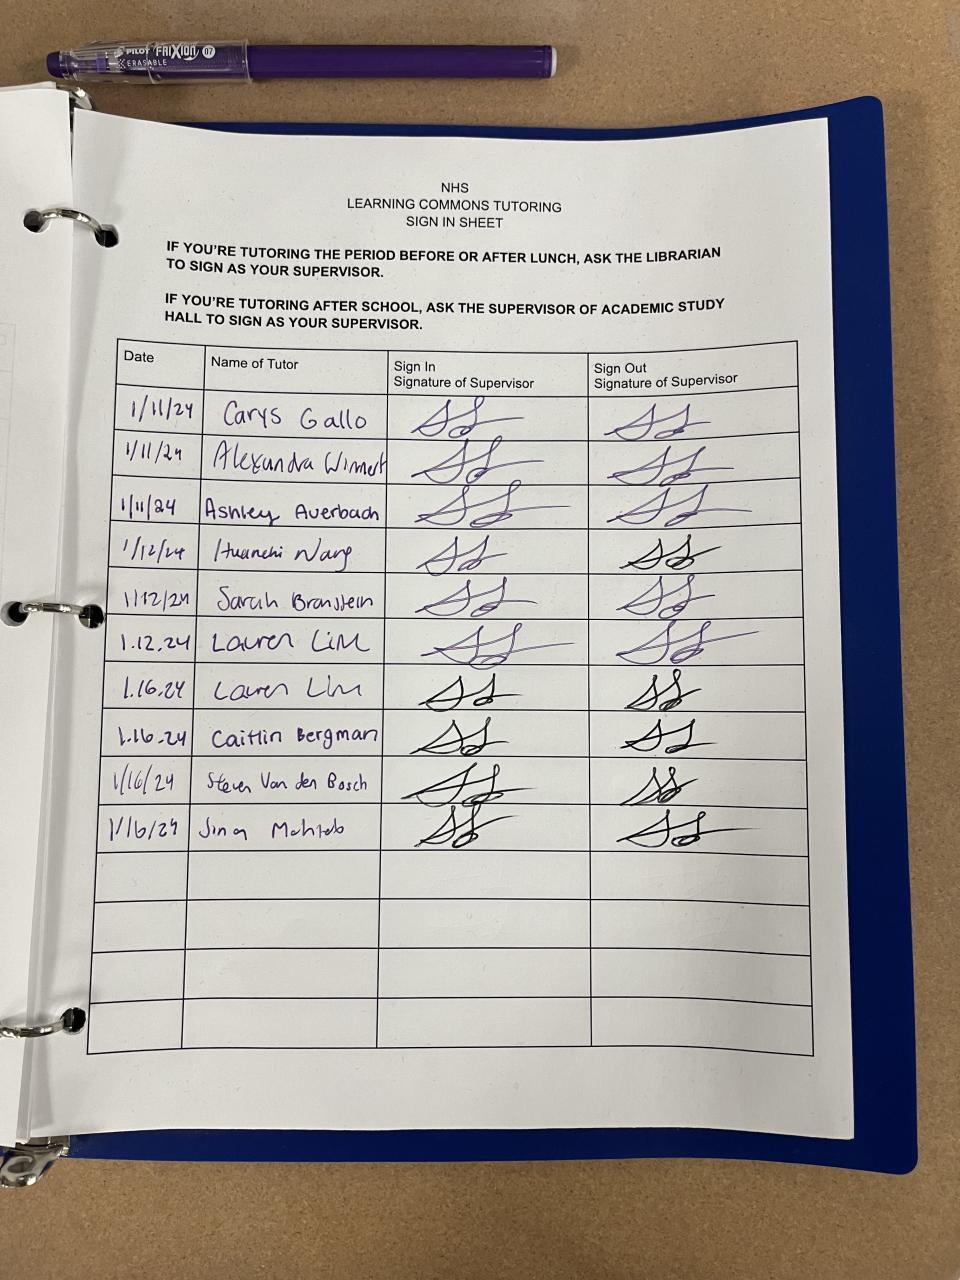 PILOT FRIXION 07
ERASABLE
NHS
LEARNING COMMONS TUTORING
SIGN IN SHEET
IF YOU'RE TUTORING THE PERIOD BEFORE OR AFTER LUNCH, ASK THE LIBRARIAN
TO SIGN AS YOUR SUPERVISOR.
IF YOU'RE TUTORING AFTER SCHOOL, ASK THE SUPERVISOR OF ACADEMIC STUDY
HALL TO SIGN AS YOUR SUPERVISOR.
Date Name of Tutor Sign In Sign Out
Signature of Supervisor Signature of Supervisor
1/11/24 Carys Gallo
1/11/24 Alexandra Winnert
1/11/24 Ashley Auerbach
1/12/24 Huanchi Wang
1/12/24 Sarah Bronstein
1.12.24 Lauren Lim
1.16.24 Lauren Lim
1.16.24 Caitlin Bergman
1/16/24 Steven Van den Bosch
1/16/24 Sina Mahtab